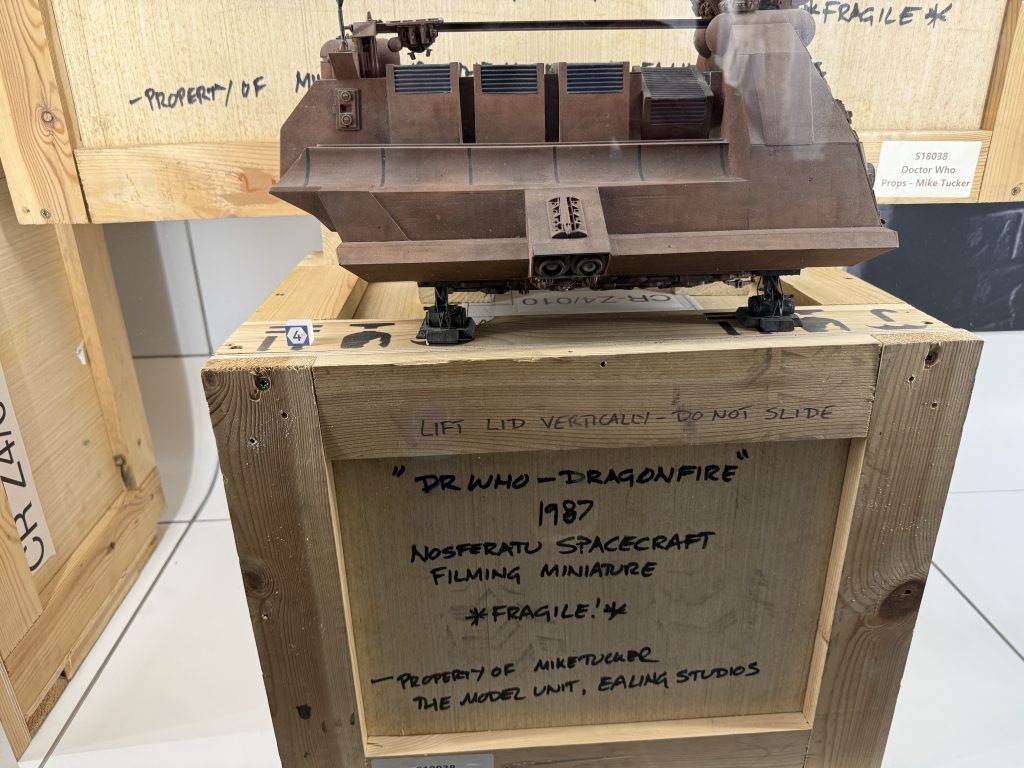 *FRAGILE*
-PROPERTY OF
S18038
Doctor Who
Props - Mike Tucker
CR-Z4/010
4
CR Z4/0
LIFT LID VERTICALLY - DO NOT SLIDE
"DR WHO - DRAGONFIRE"
1987
NOSFERATU SPACECRAFT
FILMING MINIATURE
*FRAGILE!*
- PROPERTY OF MIKE TUCKER
THE MODEL UNIT, EALING STUDIOS
S18038